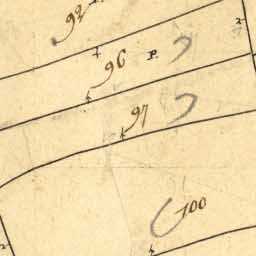 92
96 P.
97
100